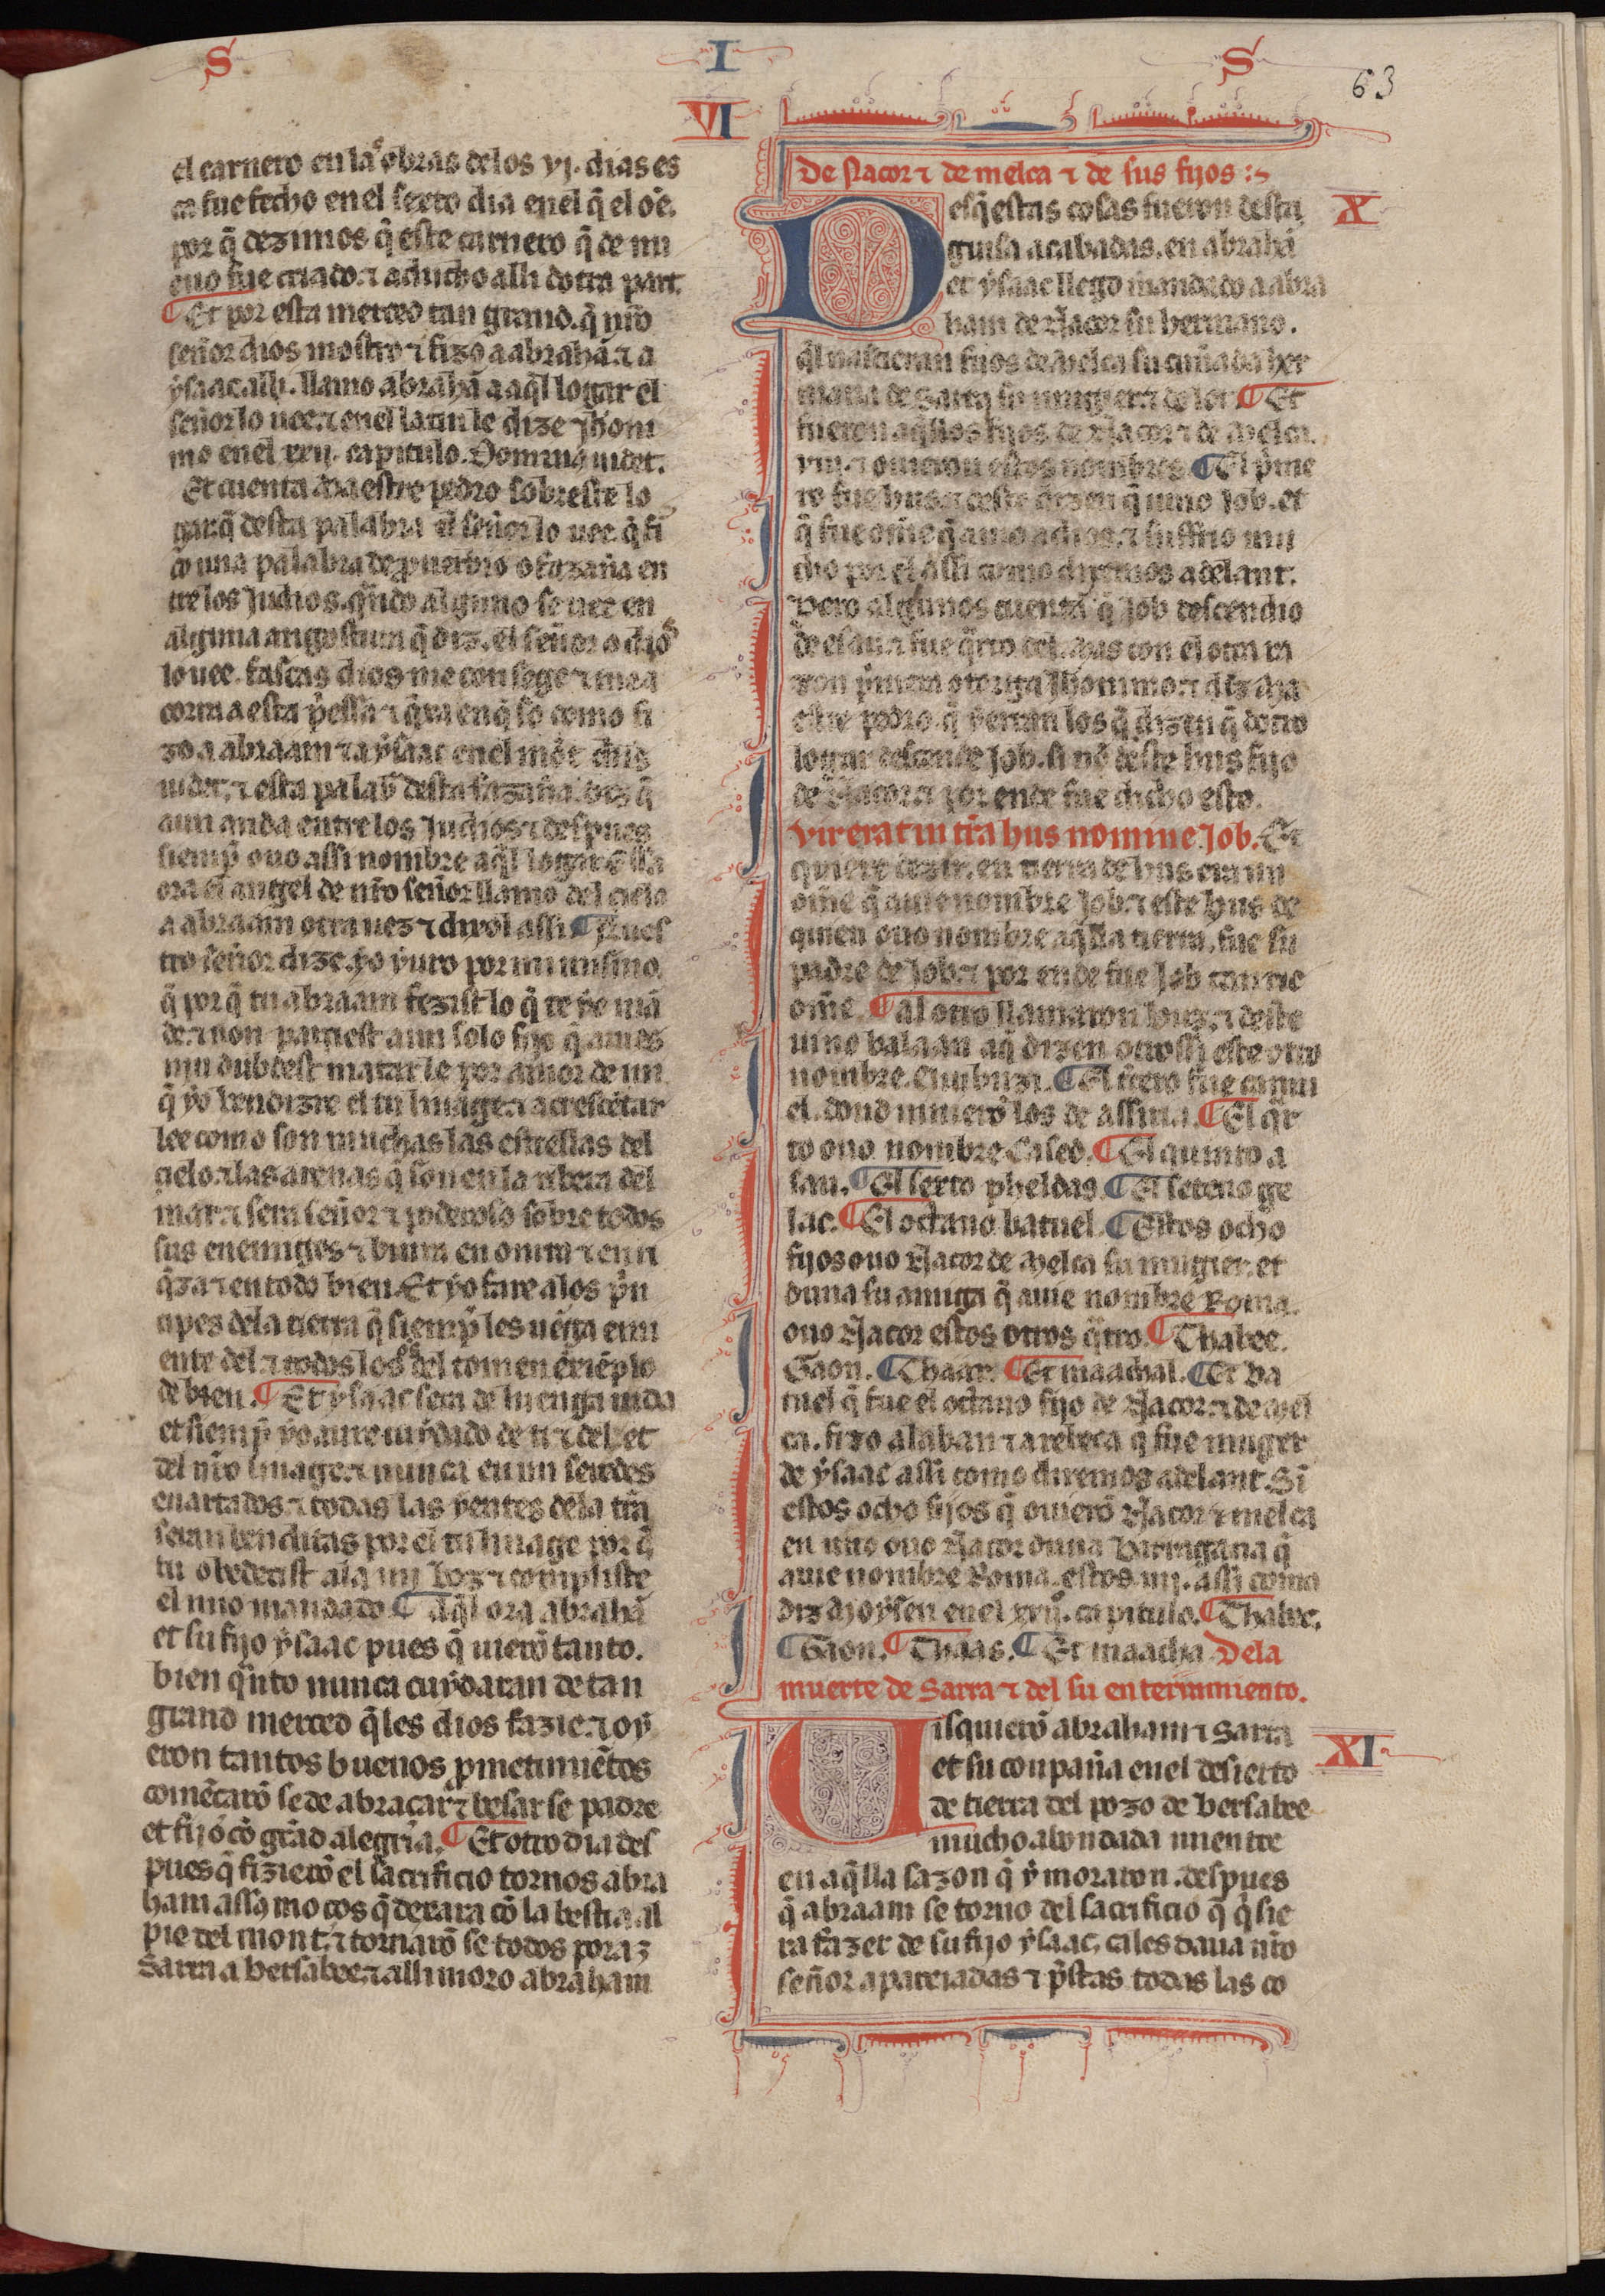 S I S
63
VI
el carnero en las obras delos vj. dias es
ca fue fecho enel sexto dia enel q̃ el oẽ.
por q̃ dezimos q̃ este carnero q̃ de nu
euo fue criado. ⁊ aducho alli dotra part.
¶ Et por esta merced tan grand. q̃ nr̃o
señor dios mostro ⁊ fizo a abrahã. ⁊ a
ẏsaac alli. llamo abrahã a aq̃l logar el
señor lo uee. ⁊ enel latin le dize Jhoni
mo enel xxij. capitulo. Dominus uidet.
Et cuenta maestre pedro sobreste lo
gar q̃ desta palabra el señor lo uee. q̃ fi
co una palabra de prouerbio o fazaña en
tre los Judios. qñdo alguno se uee en
alguna angostura q̃ diz. el señor o dios
lo uee. fascas dios me consege ⁊ me a
corra a esta p̃essa ⁊ q̃xa en q̃ so como fi
zo a abraam ⁊ a ẏsaac enel mõt dñs
uidet. ⁊ esta palab̃ desta fazaña. diz q̃
aun anda entre los Judios ⁊ despues
siemp̃ ouo assi nombre aq̃l logar. Essa
ora el angel de nr̃o señor llamo del cielo
a abraam otra uez ⁊ dixol assi. ¶ Nues
tro señor dize. ẏo ẏuro por mi mismo.
q̃ por q̃ tu abraam fezist lo q̃ te ẏo mã
de. ⁊ non parciest a un solo fijo q̃ auies
nin dubdest matar le por amor de mi.
q̃ ẏo bendizre el tu linage. ⁊ acrescẽtar
lee como son muchas las estrellas del
çielo. ⁊ las arenas q̃ son en la ribera del
mar. ⁊ sera señor ⁊ poderoso sobre todos
sus enemigos ⁊ biura en onrra ⁊ en ri
q̃za ⁊ en todo bien. Et ẏo fare alos p̃n
cipes dela tierra q̃ siemp̃ les uẽga emi
ente del. ⁊ todos los del tomen exiẽplo
de bien. ¶ Et ẏsaac sera de luenga uida
et siemp̃ ẏo aure cuẏdado de ti ⁊ del. et
del nr̃o linage. ⁊ nunca en mi seredes
enartados. ⁊ todas las ẏentes dela trr̃a
seran benditas por el tu linage por q̃
tu obedecist ala mi boz ⁊ compliste
el mio mandado. ¶ Aq̃l ora abrahã
et su fijo ẏsaac pues q̃ uierõ tanto.
bien q̃nto nunca cuẏdaran de tan
grand merced q̃les dios fazie. ⁊ oẏ
eron tantos buenos p̃metimiẽtos
comẽçarõ se de abraçar ⁊ besar se padre
et fijo cõ grãd alegria. ¶ Et otro dia des
pues q̃ fizierõ el sacrificio tornos abra
ham assus moços q̃ dexara cõ la bestia al
pie del mont. ⁊ tornarõ se todos poraz
Sarra a bersabee. ⁊ alli moro abraham
De Nacor ⁊ de melca ⁊ de sus fijos :~
X
Desq̃ estas cosas fueron desta
guisa acabadas. en abrahã
et ẏsaac llego mandado a abra
ham de Nacor su hermano.
q̃l nascieran fijos de Melca su cuñada her
mana de Sarra su mugier. ⁊ de lot. ¶ Et
fueron aq̃llos fijos de Nacor ⁊ de Melca.
viij. ⁊ ouieron estos nombres. ¶ El p̃me
ro fue hus. ⁊ deste dizen q̃ uino Job. et
q̃ fue om̃e q̃ amo a dios. ⁊ suffrio mu
cho por el assi como diremos adelant.
Pero algunos cuentã q̃ Job descendio
de esau. ⁊ fue q̃rto del. Mas con el otra ra
zon p̃mera otorga Jhonimo. ⁊ diz Ma
estre pedro. q̃ ẏerran los q̃ dizen q̃ dotro
logar desçende Job. si nõ deste hus fijo
de Nacor. ⁊ por ende fue dicho esto.
Vir erat in tr̃a hus nomine Job. Et
quiere dezir. en tierra de hus era un
om̃e q̃ auie nombre Job. ⁊ este hus de
quien ouo nombre aq̃lla tierra. fue su
padre de Job. ⁊ por ende fue Job tan ric
om̃e. ¶ al otro llamaron buz. ⁊ deste
uino balaan aq̃ dizen otrossi este otro
nombre. Eliu buzi. ¶ El t̃cero fue camu
el. dond uinierõ los de assiria. ¶ El q̃r
to ouo nombre Caseo. ¶ El quinto a
sau. ¶ El sexto pheldas. ¶ El seteno ge
lac. ¶ El octauo batuel. ¶ Estos ocho
fijos ouo Nacor de Melca su mugier. et
duna su amiga q̃ auie nombre Roma.
ouo Nacor estos otros q̃tro. ¶ Thabee.
Gaon. ¶ Thaar. ¶ Et maachal. ¶ Et ba
tuel q̃ fue el octauo fijo de Nacor. ⁊ de Mel
ca. fizo a laban ⁊ a rebeca q̃ fue muger
de ẏsaac assi como diremos adelant. Sĩ
estos ocho fijos q̃ ouierõ Nacor ⁊ melca
en uno ouo Nacor duna barragana q̃
auie nombre Roma. estos .iiij. assi como
diz Moẏsen enel xxij. capitulo. ¶ Thabee.
¶ Gaon. ¶ Thaas. ¶ Et maacha. Dela
muerte de Sarra ⁊ del su enterramiento.
XI
Uisquierõ abraham ⁊ Sarra
et su conpaña enel desierto
de tierra del pozo de bersabee
mucho abondada mientre
en aq̃lla sazon q̃ ẏ moraron. despues
q̃ abraam se torno del sacrificio q̃ q̃sie
ra fazer de su fijo ẏsaac. ca les daua nr̃o
señor apareiadas ⁊ p̃stas todas las co